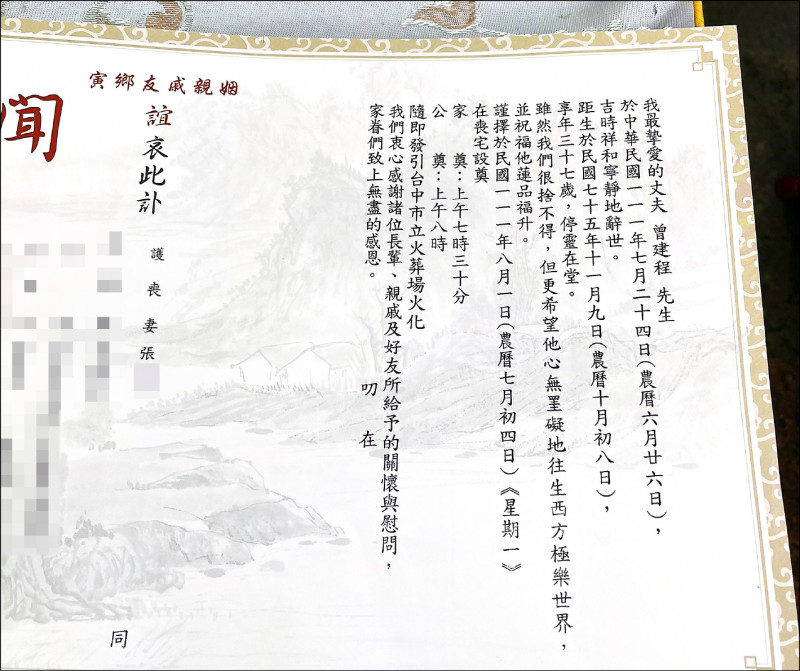 我最摯愛的丈夫 曾建程 先生
於中華民國一一一年七月二十四日(農曆六月廿六日)，
吉時祥和寧靜地辭世。
距生於民國七十五年十一月九日(農曆十月初八日)，
享年三十七歲，停靈在堂。
雖然我們很捨不得，但更希望他心無罣礙地往生西方極樂世界，
並祝福他蓮品福升。
謹擇於民國一一一年八月一日(農曆七月初四日)《星期一》
在喪宅設奠
家　奠：上午七時三十分
公　奠：上午八時
隨即發引台中市立火葬場火化
我們衷心感謝諸位長輩、親戚及好友所給予的關懷與慰問，
家眷們致上無盡的感恩。
叨在
姻親戚友鄉寅
誼哀此訃
護喪妻張
同
聞